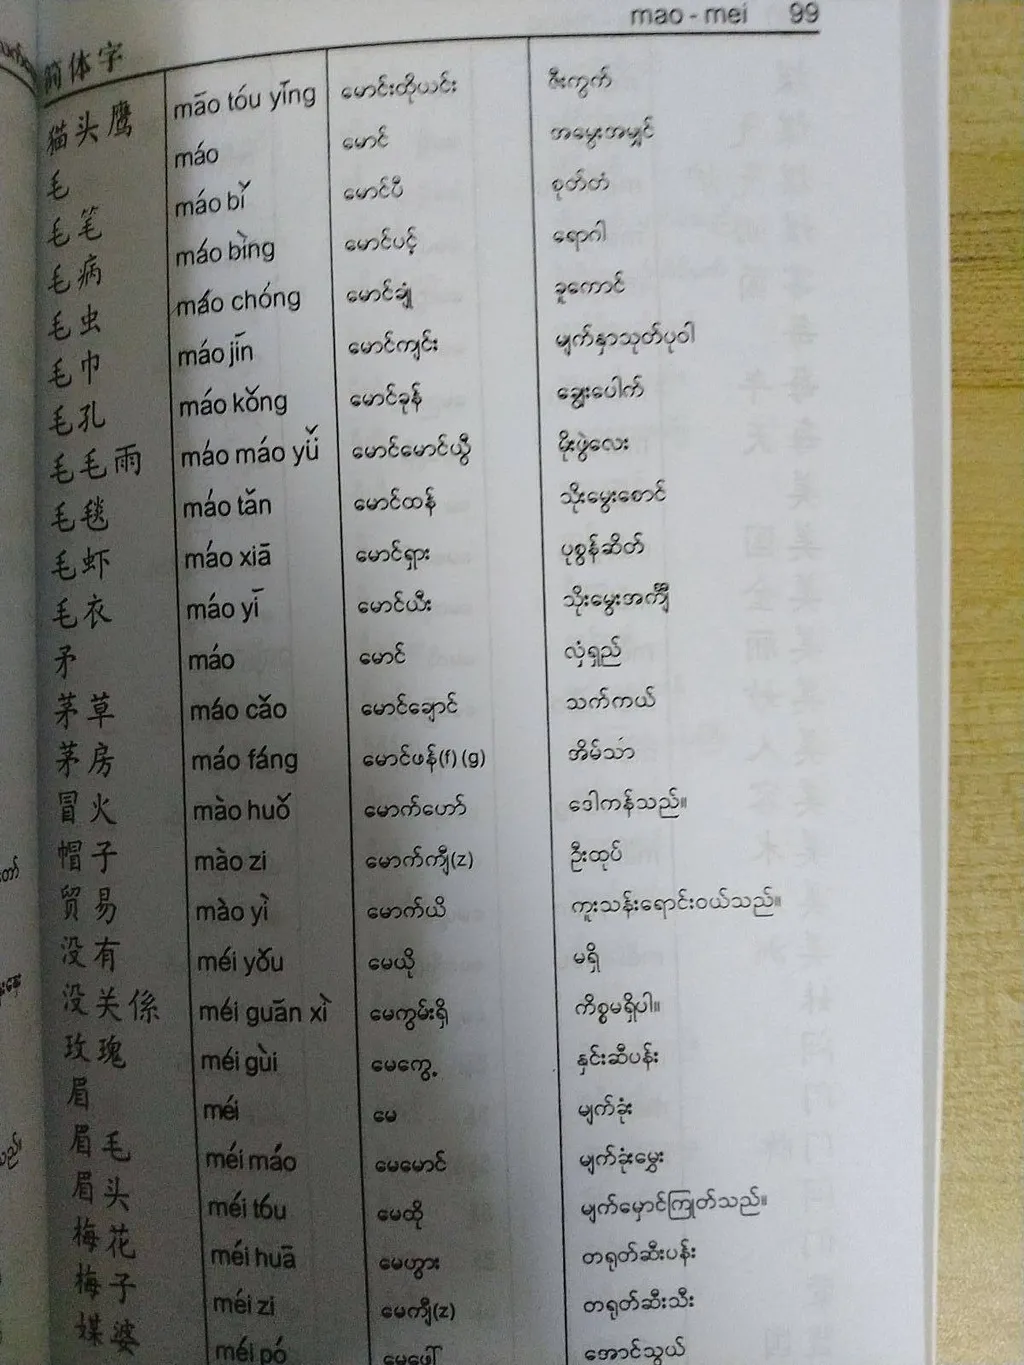 mao - mei 99
简体字
猫头鹰 māo tóu yīng မောင်းထိုယင်း ဇီးကွက်
毛 máo မောင် အမွေးအမျှင်
毛笔 máo bǐ မောင်ပီ စုတ်တံ
毛病 máo bìng မောင်ပင့် ရောဂါ
毛虫 máo chóng မောင်ချုံ ခူကောင်
毛巾 máo jīn မောင်ကျင်း မျက်နှာသုတ်ပုဝါ
毛孔 máo kǒng မောင်ခုန် ချွေးပေါက်
毛毛雨 máo máo yǔ မောင်မောင်ယွီ မိုးဖွဲလေး
毛毯 máo tǎn မောင်ထန် သိုးမွေးစောင်
毛虾 máo xiā မောင်ရှား ပုစွန်ဆိတ်
毛衣 máo yī မောင်ယီး သိုးမွေးအင်္ကျီ
矛 máo မောင် လှံရှည်
茅草 máo cǎo မောင်ချောင် သက်ကယ်
茅房 máo fáng မောင်ဖန်(f)(g) အိမ်သာ
冒火 mào huǒ မောက်ဟော် ဒေါကန်သည်။
帽子 mào zi မောက်ကျီ(z) ဦးထုပ်
贸易 mào yì မောက်ယိ ကူးသန်းရောင်းဝယ်သည်။
没有 méi yǒu မေယို မရှိ
没关係 méi guān xì မေကွမ်းရှိ ကိစ္စမရှိပါ။
玫瑰 méi gùi မေကွေ့ နှင်းဆီပန်း
眉 méi မေ မျက်ခုံး
眉毛 méi máo မေမောင် မျက်ခုံးမွှေး
眉头 méi tóu မေထို မျက်မှောင်ကြုတ်သည်။
梅花 méi huā မေဟွား တရုတ်ဆီးပန်း
梅子 méi zi မေကျီ(z) တရုတ်ဆီးသီး
媒婆 méi pó မေဖေါ် အောင်သွယ်